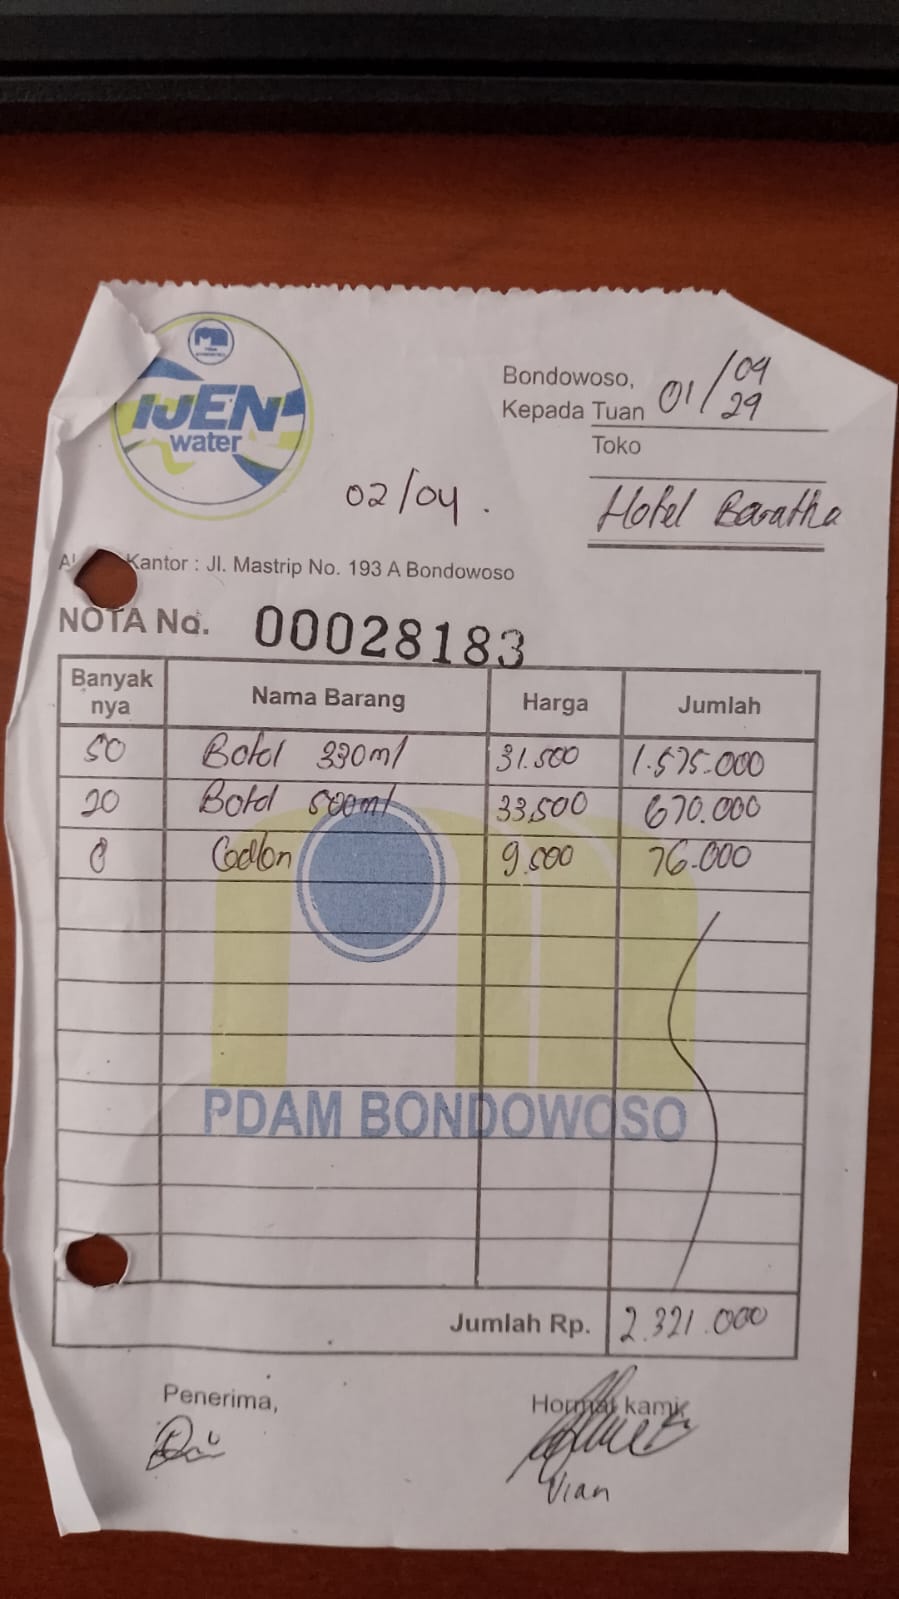 IJEN
water
Bondowoso, 01/04
Kepada Tuan 29
Toko
02/04.
Hotel Baratha
Kantor : Jl. Mastrip No. 193 A Bondowoso
NOTA No. 00028183
Banyak nya Nama Barang Harga Jumlah
50 Botol 330ml 31.500 1.575.000
20 Botol 500ml 33,500 670.000
8 Gallon 9.500 76.000
PDAM BONDOWOSO
Jumlah Rp. 2.321.000
Penerima, Hormat kami
Vian